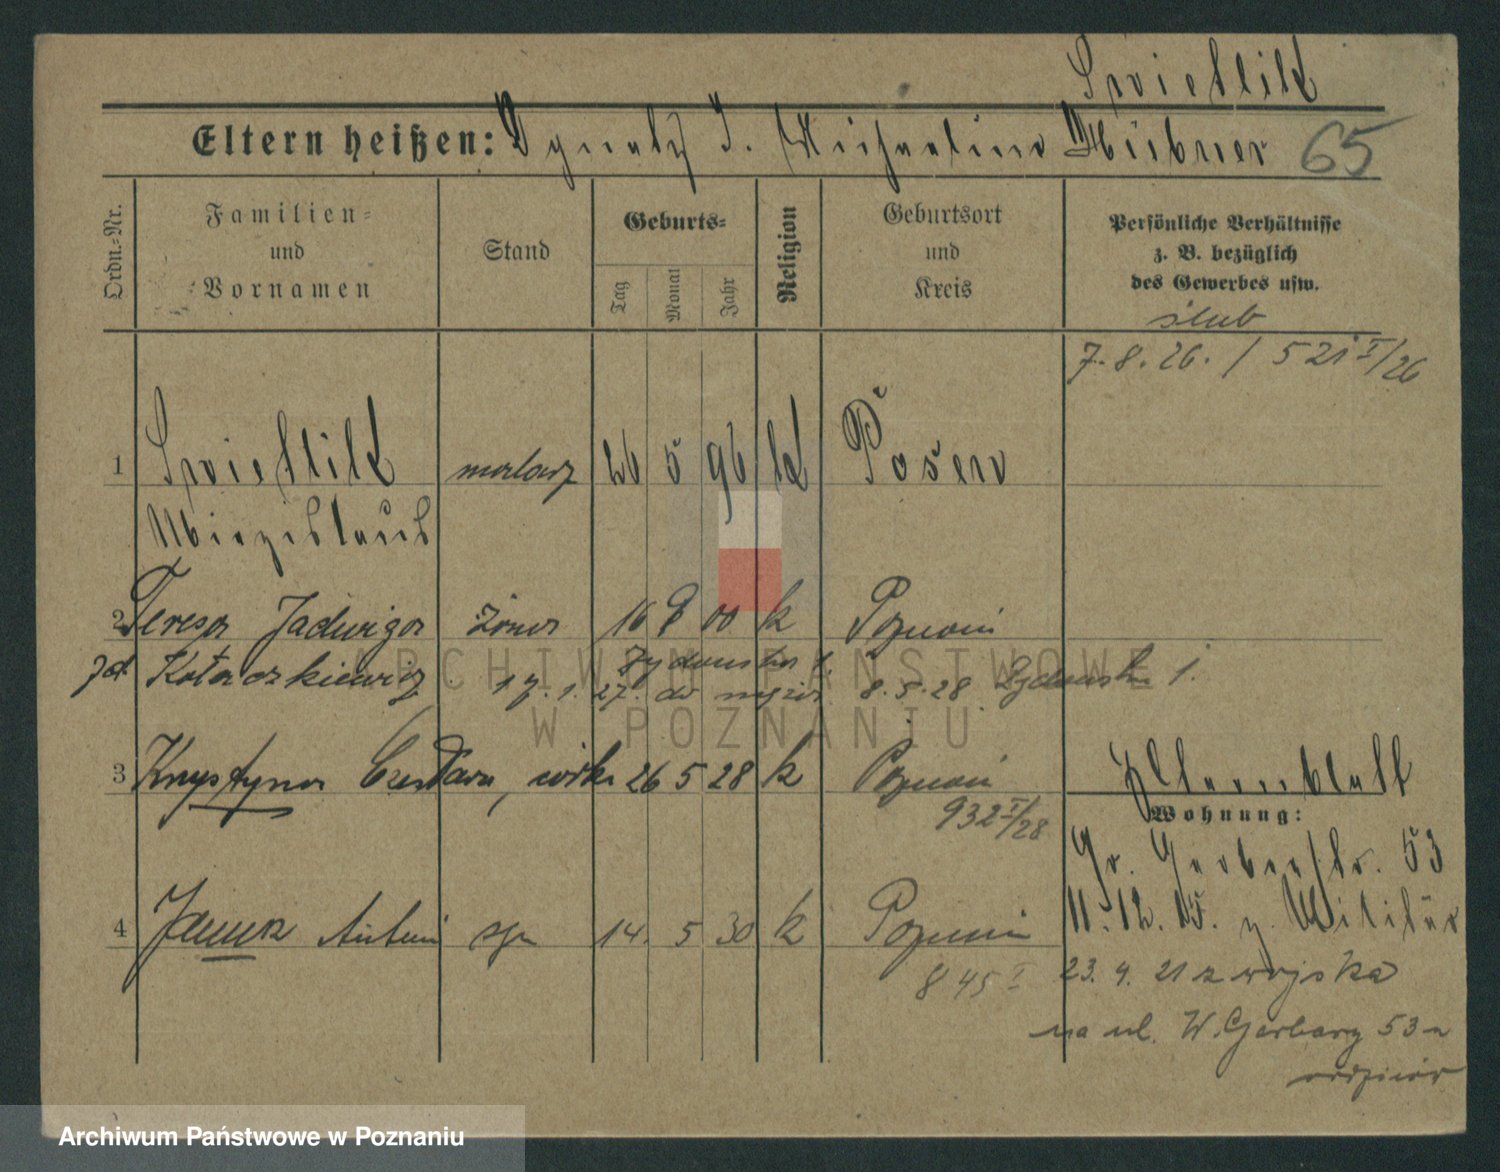 Swietlik
Eltern heißen: Ignatz I. Michaelina Hübner 65
Ordn.-Nr.
Familien- und Vornamen
Stand
Geburts-
Tag
Monat
Jahr
Religion
Geburtsort und Kreis
Persönliche Verhältnisse
z. B. bezüglich
des Gewerbes usw.
ślub
7. 8. 26. / 521 I/26
1 Swietlik malarz 26 5 96 k Posen
Miezislaus
2 Teresa Jadwiga żona 16 9 00 k Poznań
Kołaczkiewicz
17. 1. 27. do 8. 5. 28 Żydowska 1.
3 Krystyna Czesława, córka 26 5 28 k Poznań
932 I/28
Wohnung:
Gr. Gerberstr. 53
4 Janusz Antoni syn 14. 5 30 k Poznań
11. 12. 15. z. Militär
845 I
23. 4. 21 z wojska
na ul. W. Garbary 53 u
rodziców
ARCHIWUM PAŃSTWOWE
W POZNANIU
Archiwum Państwowe w Poznaniu